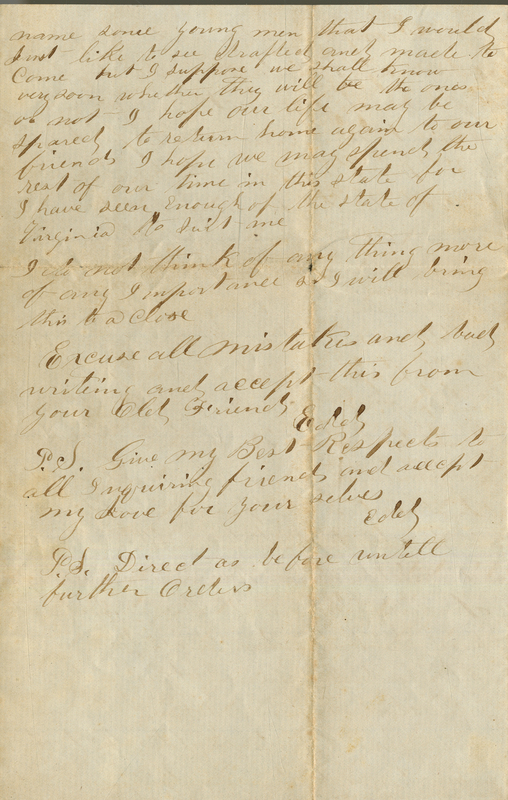 name some young men that I would
Just like to see drafted and made to
Come but I suppose we shall know
very soon whether they will be the ones
or not I hope our life may be
spared to return home again to our
friends I hope we may spend the
rest of our time in this state for
I have seen Enough of the state of
Virginia to suit me
I do not think of any thing more
of any Importance so I will bring
this to a close
Excuse all mistakes and bad
writing and accept this from
your Old Friend
Edd
P.S. Give my Best Respects to
all Inquiring friends and accept
my Love for your selves
Edd
P.S. Direct as before untill
further Orders